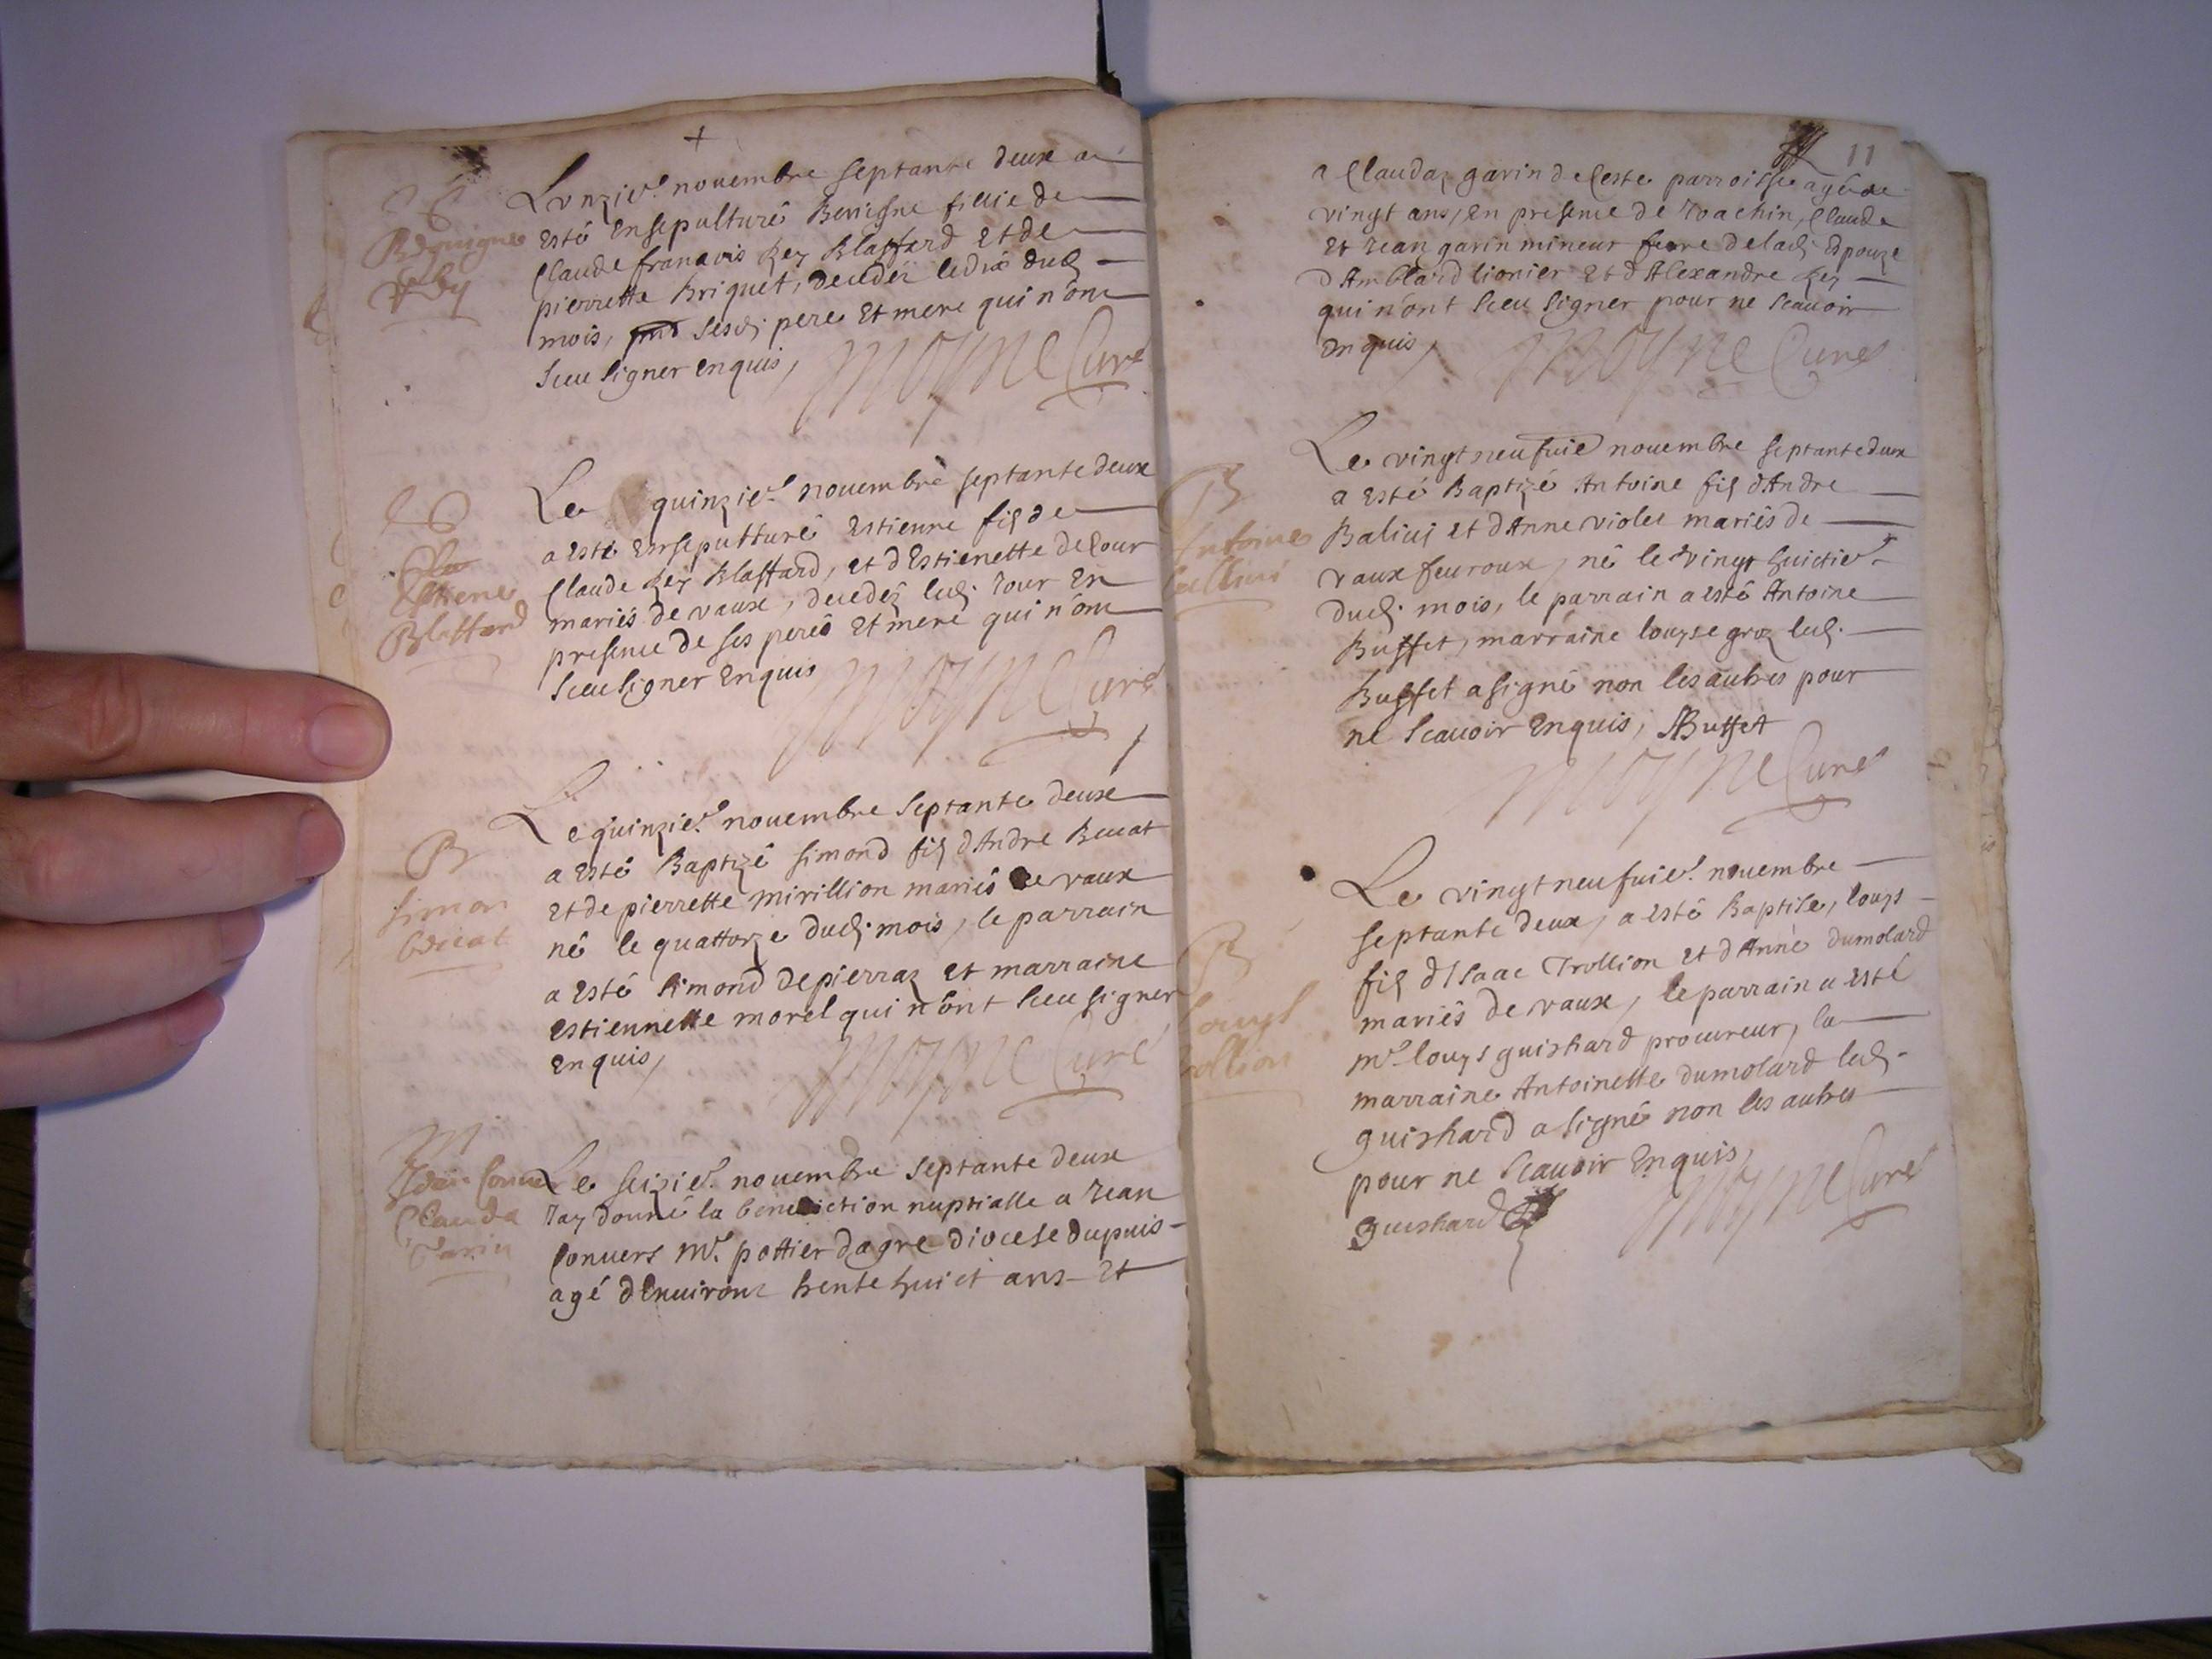 +
Lunzie. novembre septante deux a
esté ensepulturé Benigne fillie de
Claude francois Rey Blaffard et de
pierrette Briquet, decedée le dix dud.
mois, sesd. pere et mere qui n'ont
sceu signer enquis,
Moyne Curé
Le quinzie. novembre septante deux
a esté ensepulturé Estienne fils de
Estiene
Blaffard
Claude Rey Blaffard, et d'Estienette de Cour
mariés de vaux, decedé led. Jour en
presence de ses peres et mere qui n'ont
sceu signer enquis
Moyne Curé
Le quinzie. novembre septante deux
B
simon
a esté Baptizé simond fils d'Andre Benat
et de pierrette mirillion mariés de vaux
né le quattorze dud. mois, le parrain
a esté simond depierraz et marraine
estiennette morel qui n'ont sceu signer
enquis,
Moyne Curé
M
Clauda
Garin
Le seizie. novembre septante deux
Jay donné la benediction nuptialle a Jean
Convers Mr. pottier dagre diocese dupuis
agé d'environt trente huict ans et
11
a Claudaz garin de Ceste parroisse agée de
vingt ans, en presence de Joachin, Claude
et Jean garin mineur frere delad. Espouze
d'Amblard lionier et d'Alexandre Rey
qui n'ont sceu signer pour ne scavoir
enquis,
Moyne Curé
B
Antoine
Le vingt neufuie novembre septante deux
a esté Baptizé Antoine fils d'Andre
Baliui et d'Anne violet mariés de
vaux feuroux, né le vingt huictie.
dud. mois, le parrain a esté Antoine
Buffet, marraine louyse groz led.
Buffet a signé non les autres pour
ne scavoir enquis, ABuffet
Moyne Curé
B
Louys
Trollion
Le vingt neufuie. novembre
septante deux, a esté Baptise, louys
fils d'Isaac Trollion et d'Anne dumolard
mariés de vaux, le parrain a esté
mr. louys guishard procureur, la
marraine Antoinette dumolard led.
guishard a signé non les autres
pour ne scavoir enquis,
Guishard
Moyne Curé